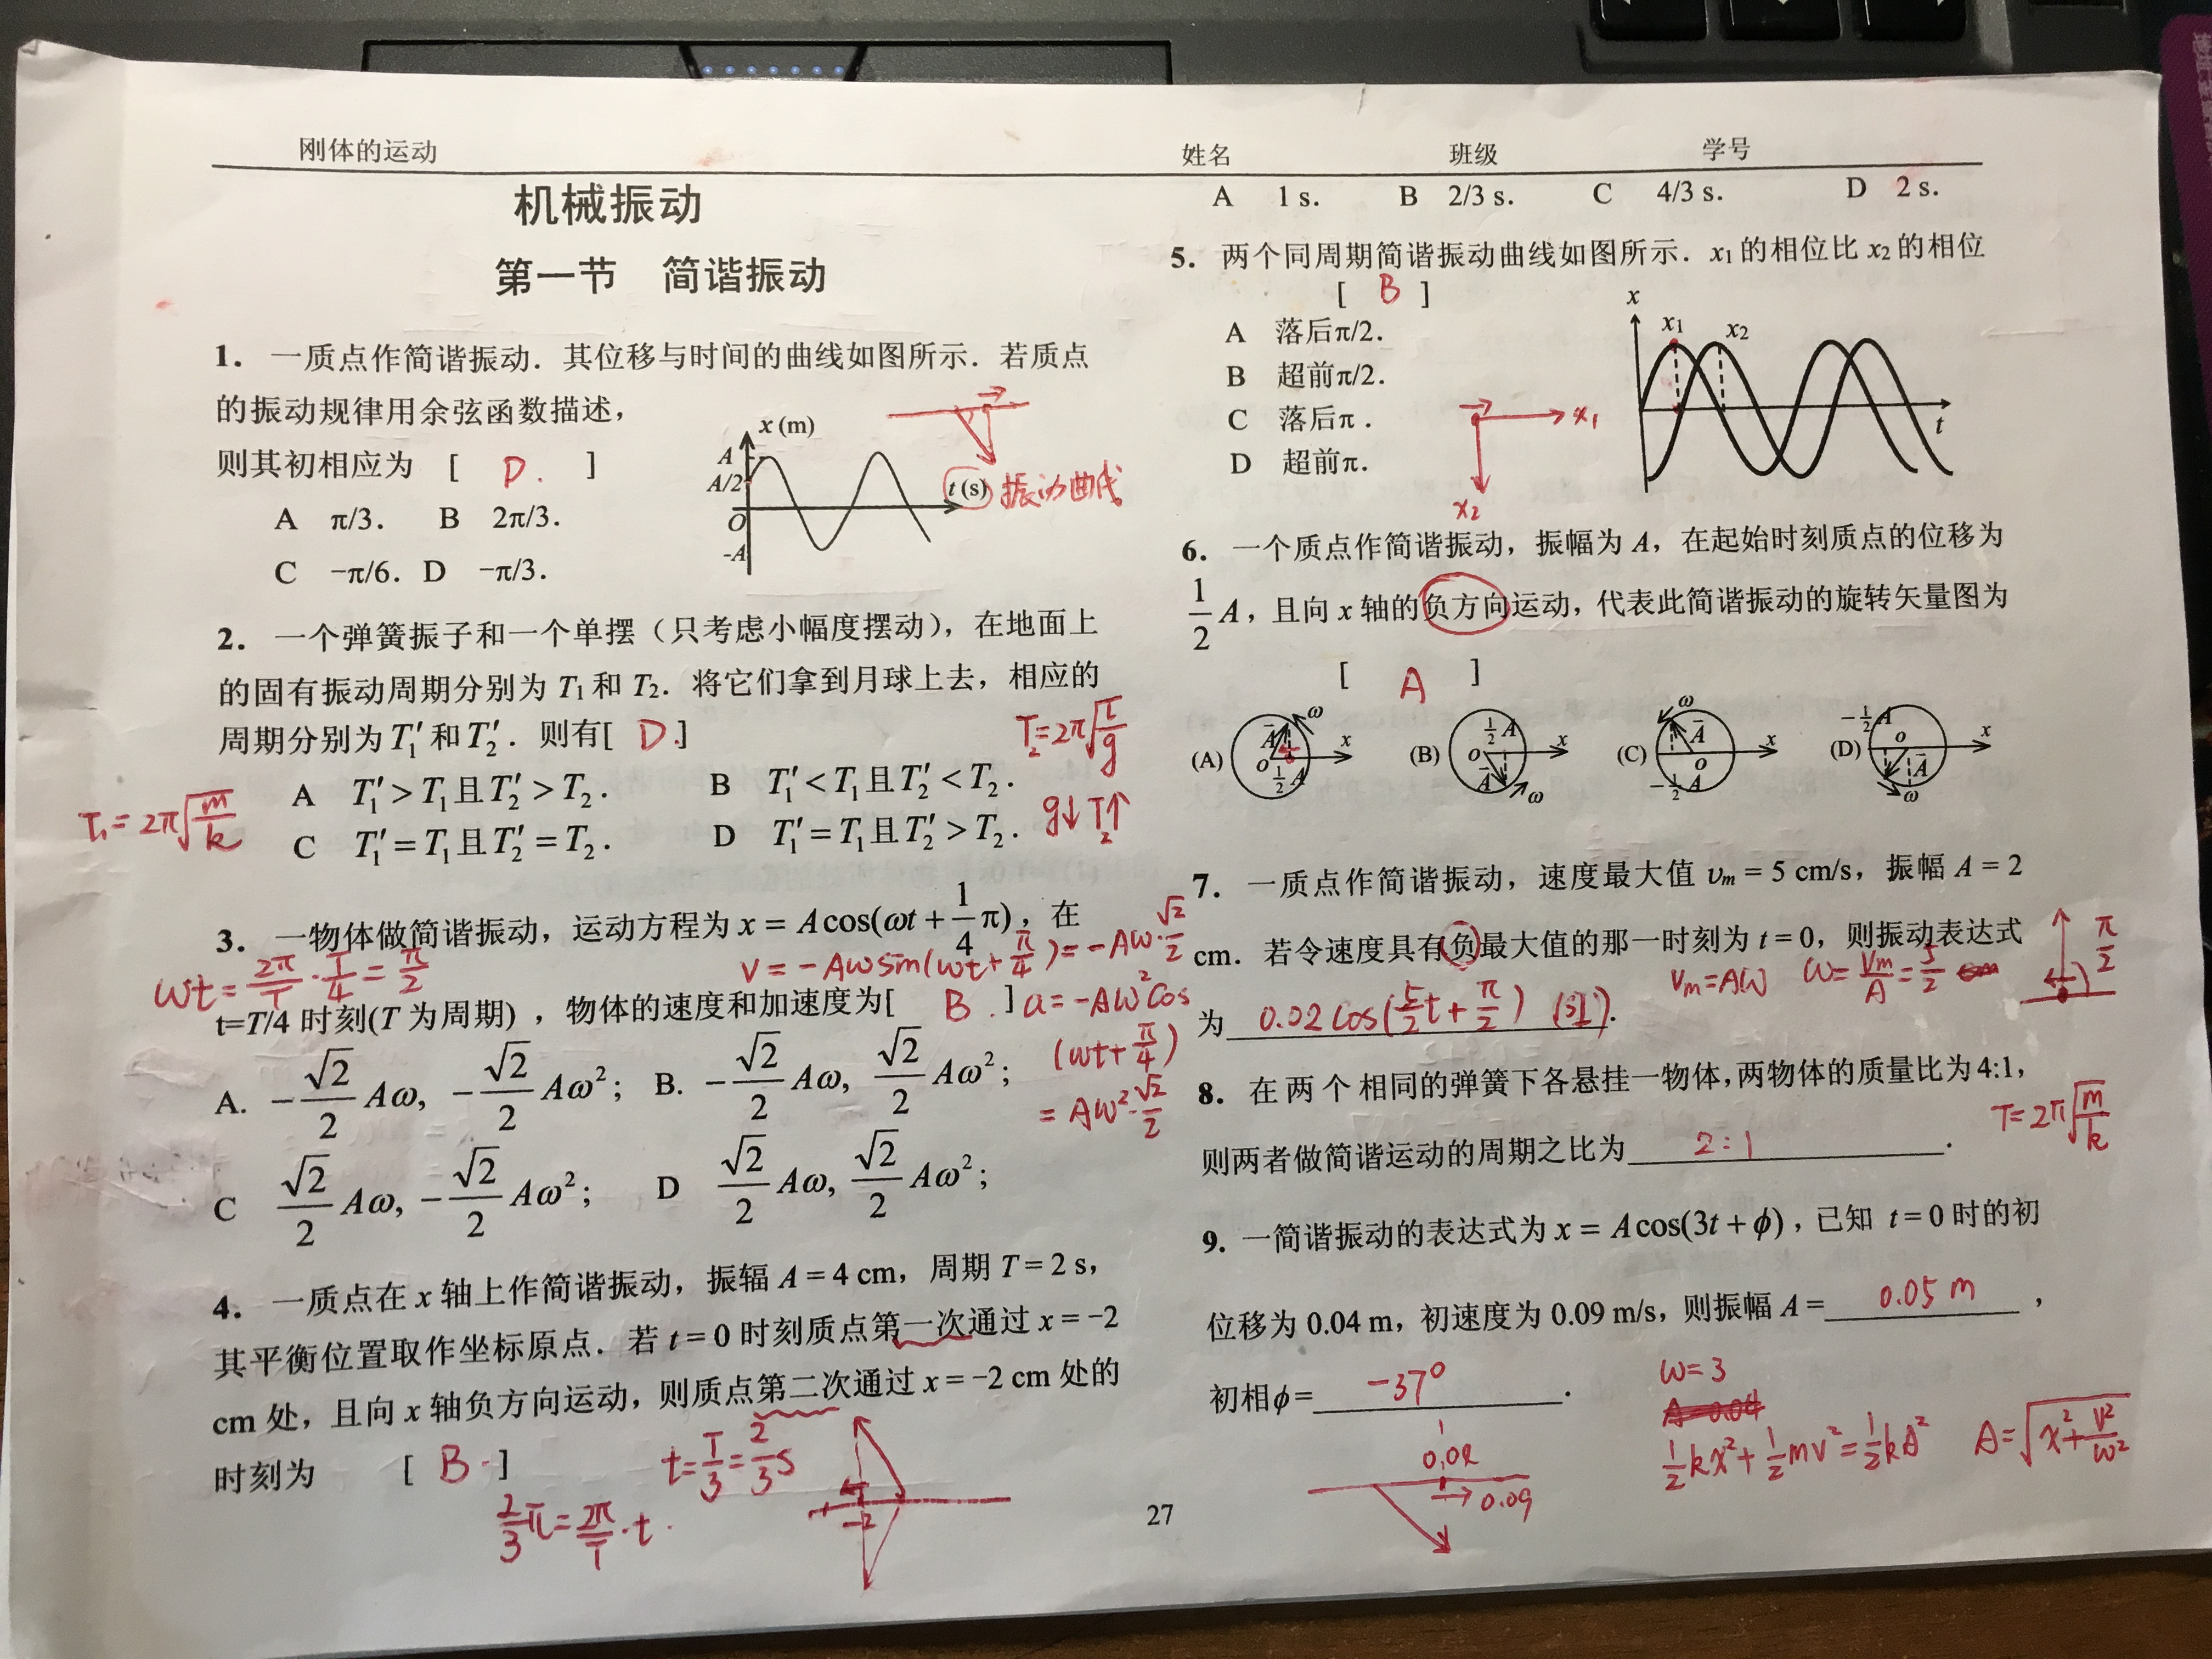 刚体的运动 姓名 班级 学号
机械振动
第一节 简谐振动
1. 一质点作简谐振动．其位移与时间的曲线如图所示．若质点
的振动规律用余弦函数描述，
则其初相应为 [ D. ]
A π/3. B 2π/3.
C -π/6. D -π/3.
x(m)
A
A/2
O
-A
t(s) 振动曲线
2. 一个弹簧振子和一个单摆（只考虑小幅度摆动），在地面上
的固有振动周期分别为 T₁ 和 T₂．将它们拿到月球上去，相应的
周期分别为 T₁′ 和 T₂′．则有[ D.]
T₂=2π√(l/g)
g↓T₂↑
A T₁′ > T₁ 且 T₂′ > T₂． B T₁′ < T₁ 且 T₂′ < T₂．
C T₁′ = T₁ 且 T₂′ = T₂． D T₁′ = T₁ 且 T₂′ > T₂．
T₁ = 2π√(m/k)
3. 一物体做简谐振动，运动方程为 x = A cos(ωt + 1/4 π)，在
ωt = 2π/T · T/4 = π/2
V = -Aωsin(ωt+π/4) = -Aω·√2/2
t=T/4 时刻(T 为周期)，物体的速度和加速度为[ B . ]
a = -Aω²cos
(ωt+π/4)
= Aω²·√2/2
A. -√2/2 Aω, -√2/2 Aω²； B. -√2/2 Aω, √2/2 Aω²；
C √2/2 Aω, -√2/2 Aω²； D √2/2 Aω, √2/2 Aω²；
4. 一质点在 x 轴上作简谐振动，振辐 A = 4 cm，周期 T = 2 s，
其平衡位置取作坐标原点．若 t = 0 时刻质点第一次通过 x = -2
cm 处，且向 x 轴负方向运动，则质点第二次通过 x = -2 cm 处的
时刻为 [ B. ]
t = T/3 = 2/3 s
2/3 π = 2π/T · t
-2
A 1 s. B 2/3 s. C 4/3 s. D 2 s.
5. 两个同周期简谐振动曲线如图所示．x₁ 的相位比 x₂ 的相位
[ B ]
A 落后π/2.
B 超前π/2.
C 落后π．
D 超前π.
x
x₁
x₂
t
x₁
x₂
6. 一个质点作简谐振动，振幅为 A，在起始时刻质点的位移为
1/2 A，且向 x 轴的负方向运动，代表此简谐振动的旋转矢量图为
[ A ]
(A) ω A O 1/2 A x
(B) 1/2 A O A ω x
(C) ω A O -1/2 A x
(D) -1/2 A O A ω x
7. 一质点作简谐振动，速度最大值 υm = 5 cm/s，振幅 A = 2
cm．若令速度具有负最大值的那一时刻为 t = 0，则振动表达式
为 0.02cos(5/2 t + π/2) (SI).
Vm=Aω ω=Vm/A=5/2
π/2
8. 在两个相同的弹簧下各悬挂一物体，两物体的质量比为 4:1，
则两者做简谐运动的周期之比为 2:1 .
T=2π√(m/k)
9. 一简谐振动的表达式为 x = A cos(3t + ϕ)，已知 t = 0 时的初
位移为 0.04 m，初速度为 0.09 m/s，则振幅 A = 0.05 m ，
初相 ϕ = -37° .
ω=3
1/2 kx² + 1/2 mv² = 1/2 kA²
A=√(x²+v²/ω²)
0.09
27